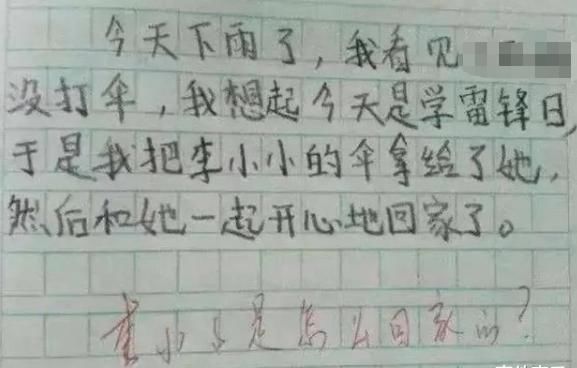 今天下雨了，我看见
没打伞，我想起今天是学雷锋日，
于是我把李小小的伞拿给了她，
然后和她一起开心地回家了。
李小小是怎么回家的？